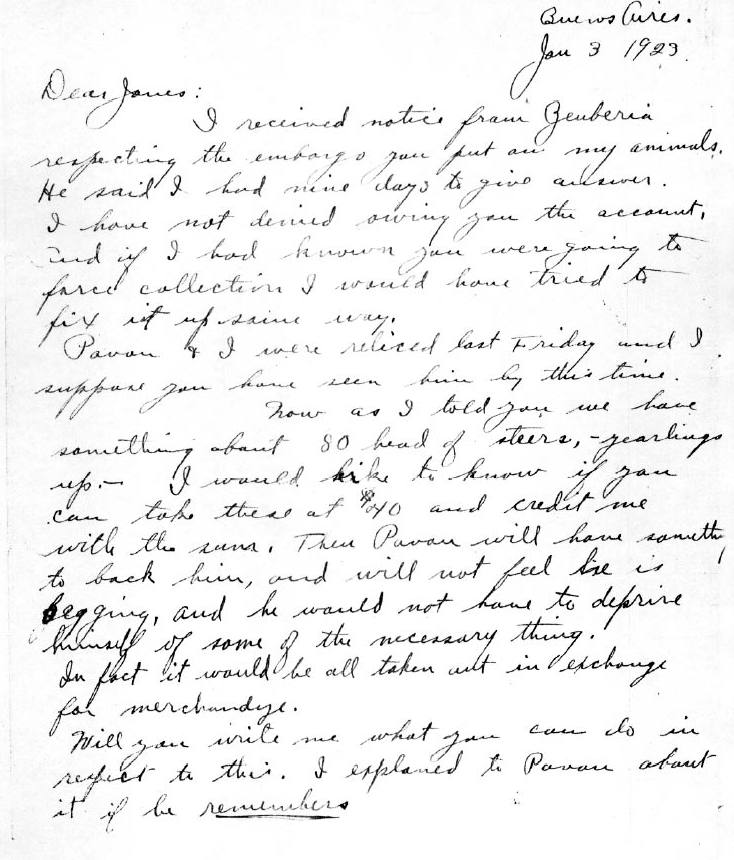 Buenos Aires.
Jan 3 1923.
Dear Jones:
I received notice from
respecting the embargo you put on my animals.
He said I had nine days to give answer.
I have not denied owing you the account,
and if I had known you were going to
force collection I would have tried to
fix it up some way.
Pavon & I were last Friday and I
suppose you have seen him by this time.
Now as I told you we have
something about 80 head of steers, - yearlings
up. - I would like to know if you
can take these at $40 and credit me
with the sum. Then Pavon will have somethi
to back him, and will not feel he is
begging, and he would not have to deprive
himself of some of the necessary thing.
In fact it would be all taken out in exchange
for merchandize.
Will you write me what you can do in
respect to this. I explaned to Pavon about
it if he remembers